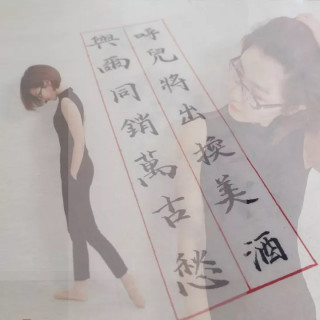 呼兒將出換美酒
與爾同銷萬古愁